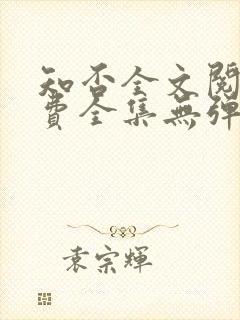 知否全文閱
費全集無彈
袁宗輝